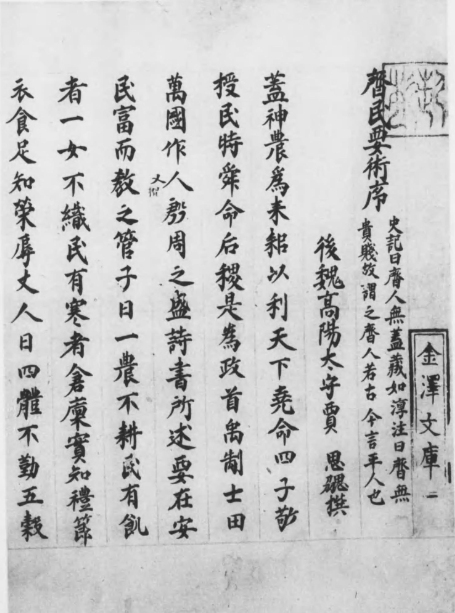 齊民要術序
史記曰齊人無蓋藏如淳注曰齊無
貴賤故謂之齊人若古今言平人也
後魏高陽太守賈 思勰撰
蓋神農爲耒耜以利天下堯命四子敬
授民時舜命后稷是爲政首禹制土田
萬國作乂殷周之盛詩書所述要在安
民富而教之管子曰一農不耕民有飢
者一女不織民有寒者倉廩實知禮節
衣食足知榮辱丈人曰四體不勤五穀
金澤文庫